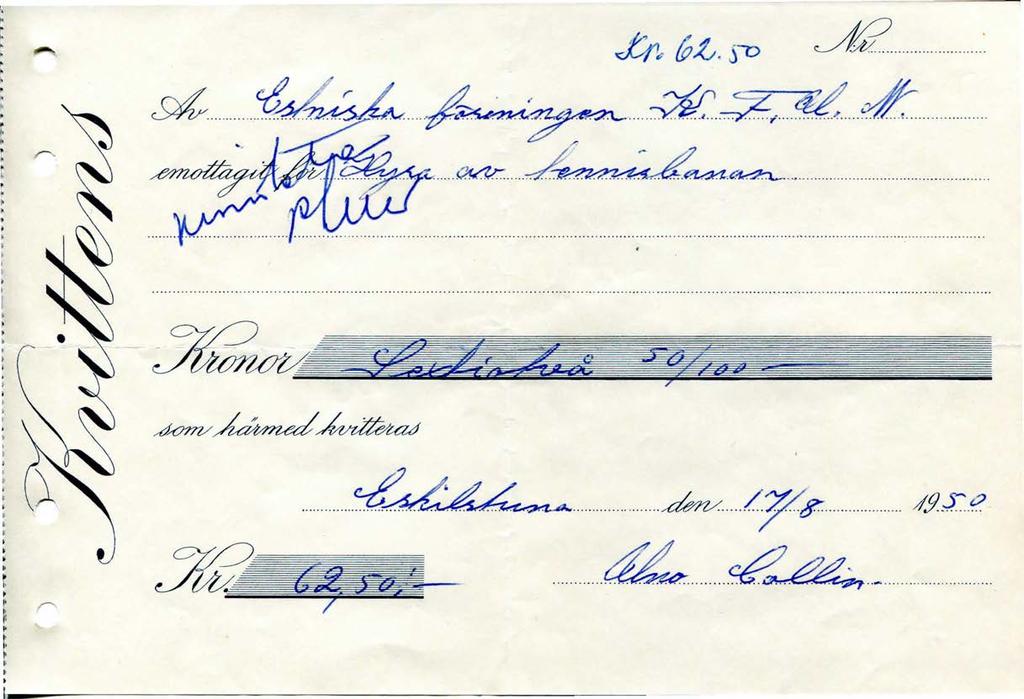 Kvittens
Kr. 62.50 Nr
Av Estniska föreningen K. F. U. M.
emottagit för Hyra av tennisbanan
Kronor Sextiotvå 50/100 —
som härmed kvitteras
Eskilstuna den 17/8 1950
Kr. 62,50:— Uno Collin